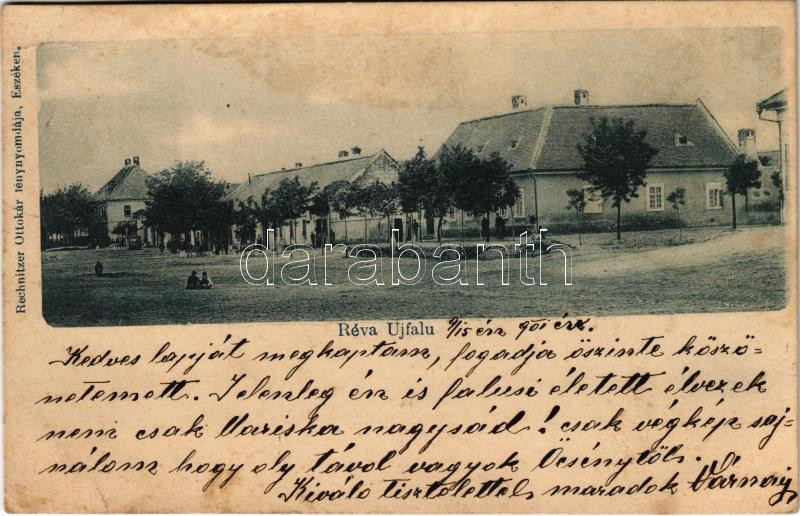 Rechnitzer Ottokár fénynyomdája, Eszéken.
darabanth
Réva Ujfalu 9/15 én 901 érk.
Kedves lapját megkaptam, fogadja öszinte köszö=
netemett. Jelenleg én is falusi életett élvezek
nem csak Mariska nagysád! csak végkép saj=
nálom hogy oly távol vagyok Öcsénytöl.
Kiváló tisztelettel maradok Várnay